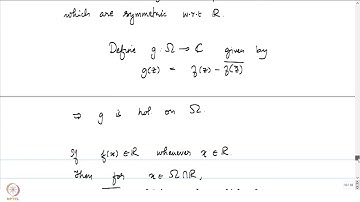 which are symmetric w.r.t R.
Define g : Ω → C given by
g(z) = f(z) - \overline{f(\overline{z})}
⇒ g is hol. on Ω.
If f(x) ∈ R whenever x ∈ R.
Then for x ∈ Ω ∩ R,
NPTEL